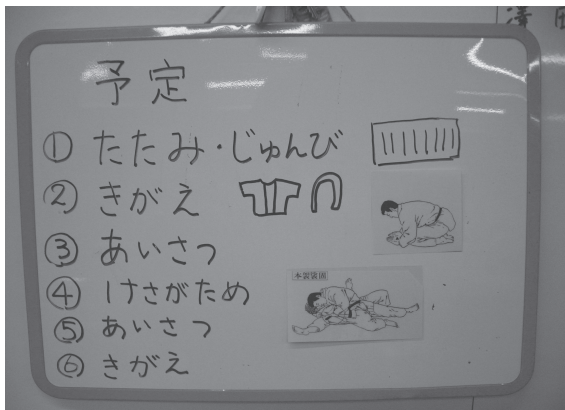 予定
① たたみ・じゅんび
② きがえ
③ あいさつ
④ けさがため
⑤ あいさつ
⑥ きがえ